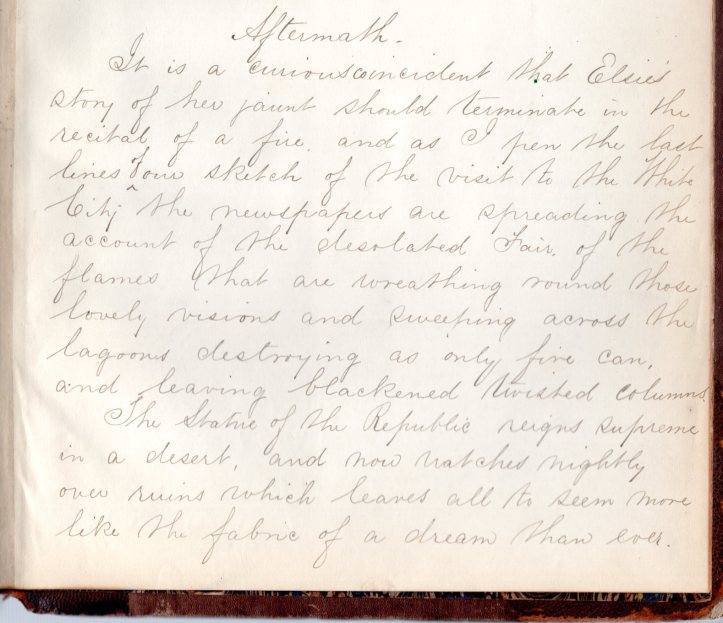 Aftermath.
It is a curious coincident that Elsie's
story of her jaunt should terminate in the
recital of a fire, and as I pen the last
lines of our sketch of the visit to the White
City the newspapers are spreading the
account of the desolated Fair, of the
flames that are wreathing round those
lovely visions and sweeping across the
lagoons destroying as only fire can,
and leaving blackened twisted columns.
The Statue of the Republic reigns supreme
in a desert, and now watches nightly
over ruins which leaves all to seem more
like the fabric of a dream than ever.